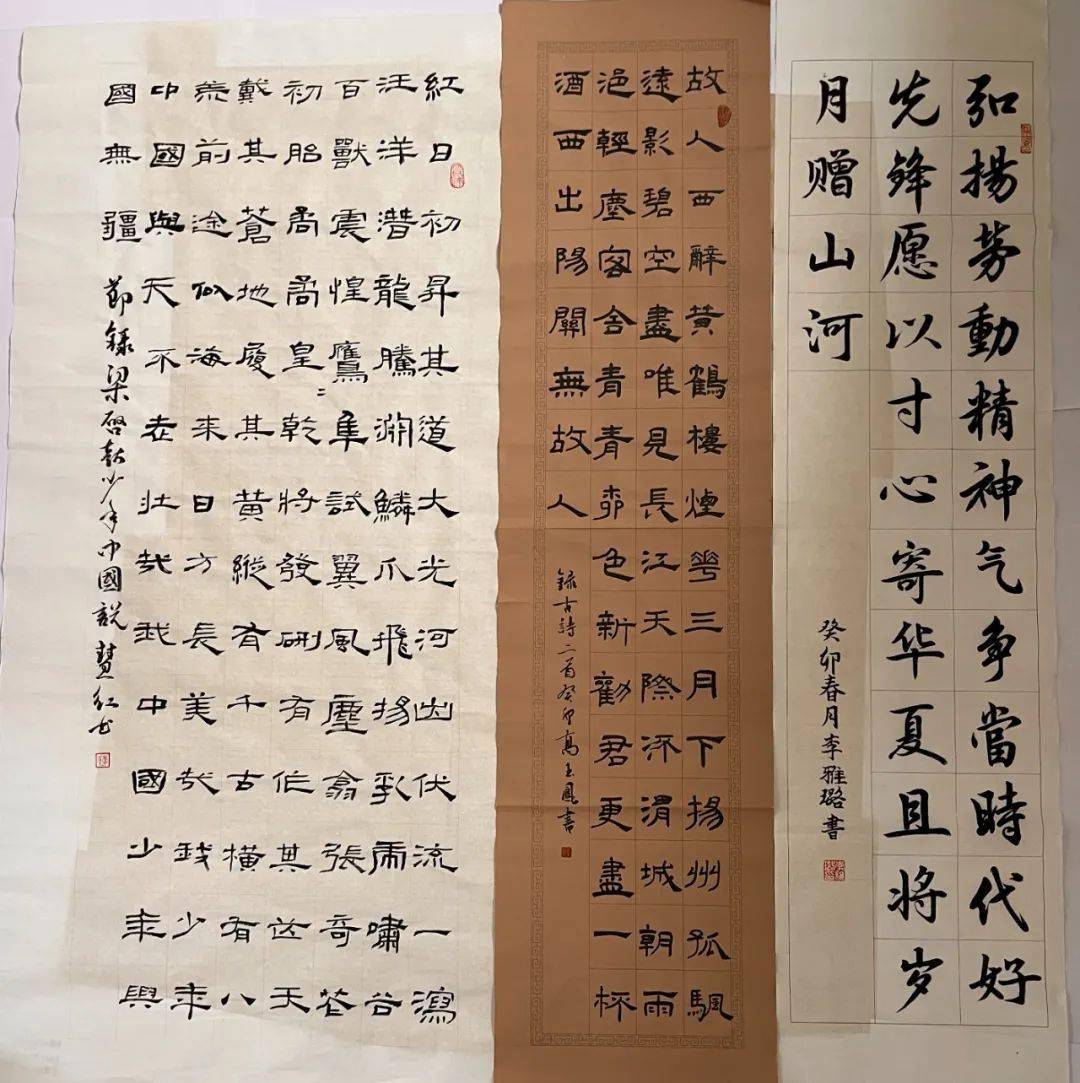 弘揚劳動精神气争當時代好
先锋愿以寸心寄华夏且将岁
月赠山河
癸卯春月李雅璐書
故人西辭黄鶴樓煙華三月下揚州孤颿
遠影碧空盡唯見長江天際流渭城朝雨
浥輕塵客舍青青柳色新勸君更盡一杯
酒西出陽關無故人
錄古詩二首癸卯高玉鳳書
紅日初昇其道大光河出伏流一瀉
汪洋潛龍騰淵鱗爪飛揚乳虎嘯谷
百獸震惶鷹隼試翼風塵翕張奇花
初胎矞矞皇〻乾將發硎有作其芒天
戴其蒼地履其黃縱有千古橫有八
荒前途似海來日方長美哉我少年
中國與天不老壯哉我中國少年與
國無疆
節錄梁啓超少年中國說慧红书